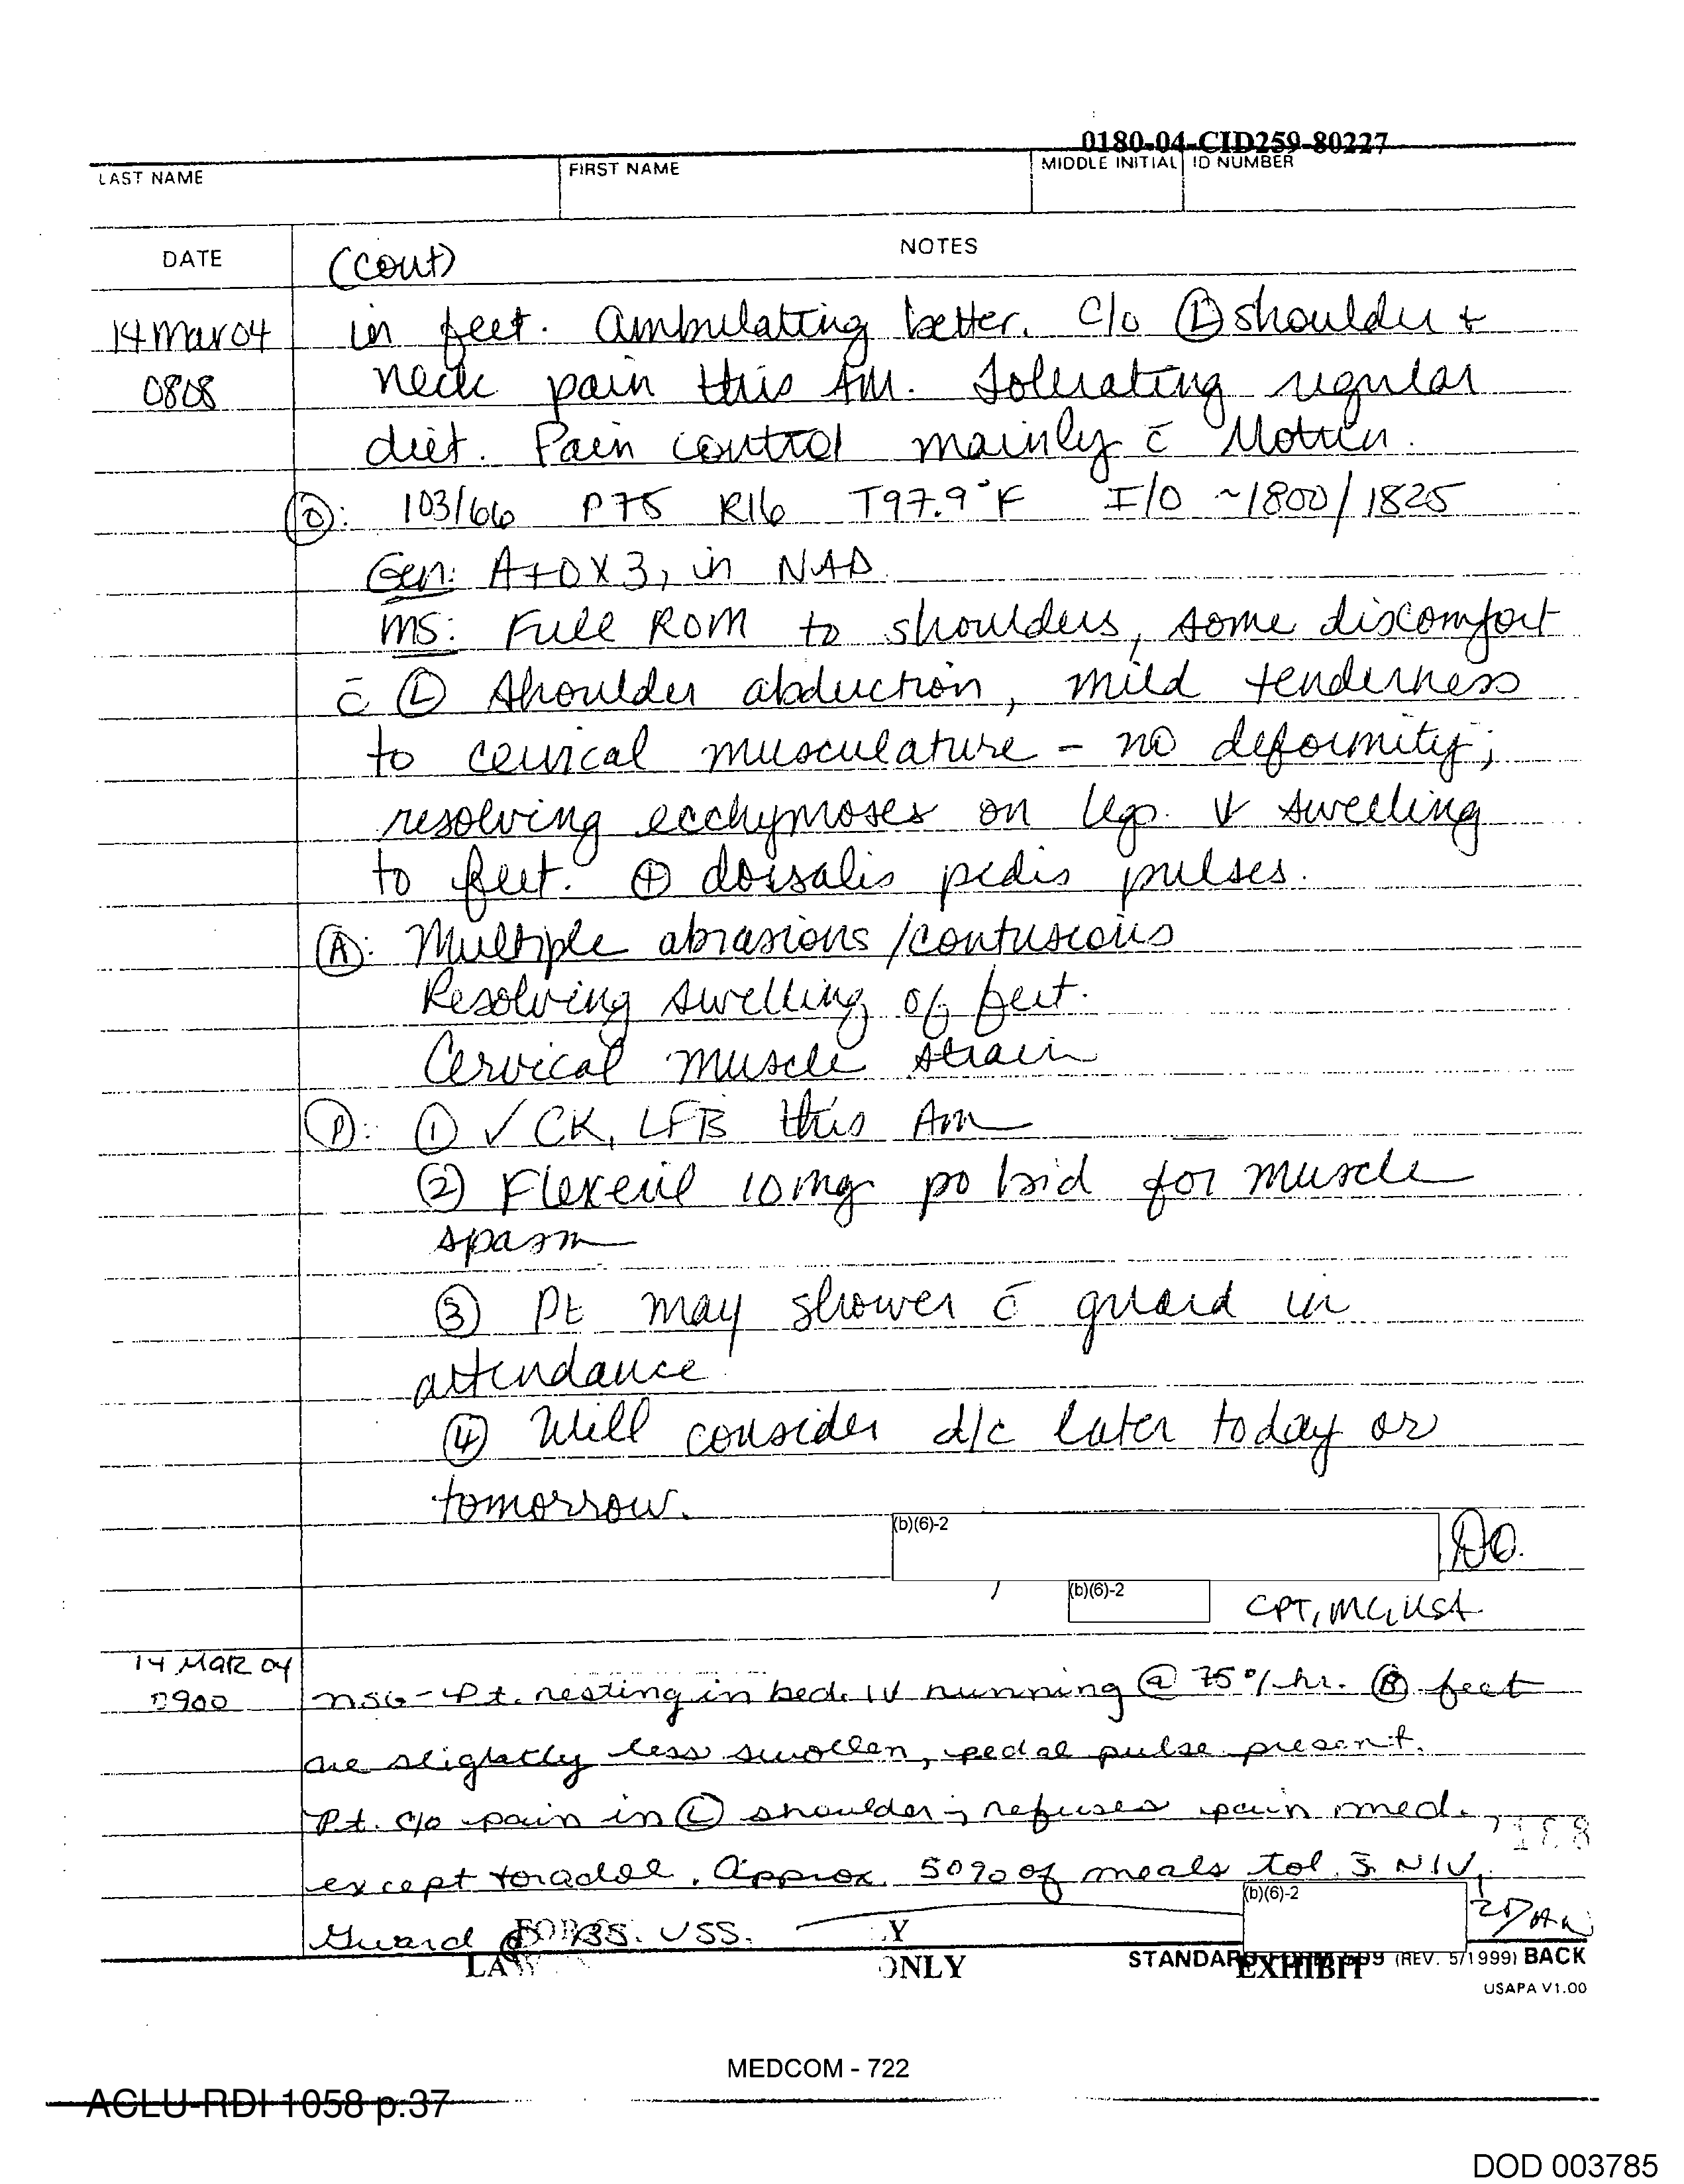 0180-04-CID259-80227
LAST NAME FIRST NAME MIDDLE INITIAL ID NUMBER
DATE NOTES
(cont)
14 Mar 04 in feet. Ambulating better. C/o Ⓛ shoulder +
0808 neck pain this AM. Tolerating regular
diet. Pain control mainly c̄ Motrin.
Ⓞ: 103/66 P75 R16 T97.9°F I/O ~1800/1825
Gen: A+OX3, in NAD.
MS: Full ROM to shoulders, some discomfort
c̄ Ⓛ shoulder abduction, mild tenderness
to cervical musculature - no deformity;
resolving ecchymoses on legs. ↓ swelling
to feet. ⊕ dorsalis pedis pulses.
Ⓐ: Multiple abrasions/contusions
Resolving swelling of feet.
Cervical muscle strain
Ⓟ: ① ✓ CK, LFTs this AM
② Flexeril 10mg po bid for muscle
spasm
③ Pt may shower c̄ guard in
attendance
④ Will consider d/c later today or
tomorrow.
(b)(6)-2 DO.
(b)(6)-2 CPT, MC, USA
14 MAR 04
0900 NSG - Pt. resting in bed. IV running @ 75cc/hr. Ⓑ feet
are slightly less swollen, pedal pulse present.
Pt. c/o pain in Ⓛ shoulder; refuses pain med.
except toradol. Approx. 50% of meals tol. s̄ N/V.
(b)(6)-2
Guard @ BS. VSS.
LAW ONLY EXHIBIT
STANDARD FORM 509 (REV. 5/1999) BACK
USAPA V1.00
MEDCOM - 722
ACLU-RDI 1058 p.37
DOD 003785